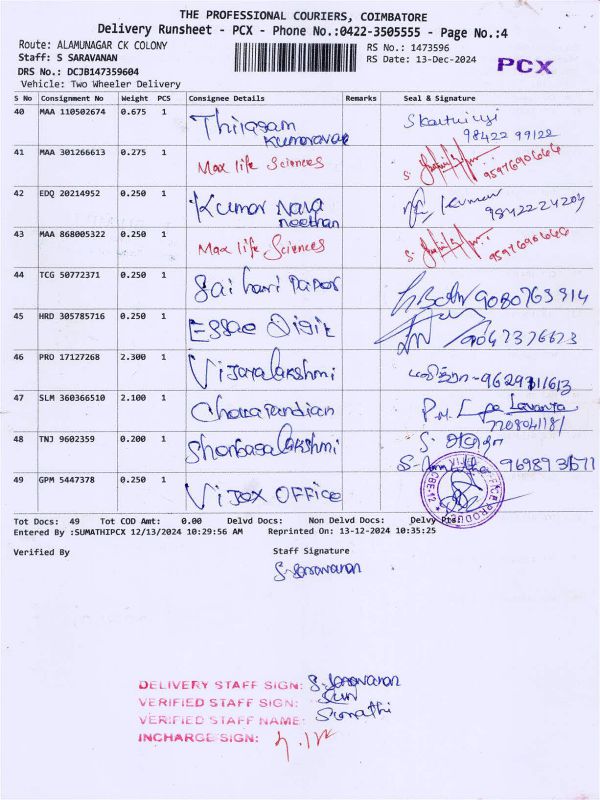 THE PROFESSIONAL COURIERS, COIMBATORE
Delivery Runsheet - PCX - Phone No.:0422-3505555 - Page No.:4
Route: ALAMUNAGAR CK COLONY
RS No.: 1473596
Staff: S SARAVANAN
RS Date: 13-Dec-2024
PCX
DRS No.: DCJB147359604
Vehicle: Two Wheeler Delivery
S No Consignment No Weight PCS Consignee Details Remarks Seal & Signature
40 MAA 110502674 0.675 1 Thiragam Kumaravar 98422 99122
41 MAA 301266613 0.275 1 Max life Sciences 9597690666
42 EDQ 20214952 0.250 1 Kumar Nava neethan Kumar 9842224203
43 MAA 868005322 0.250 1 Max life Sciences 9597690666
44 TCG 50772371 0.250 1 Sai hari Paper 9080763914
45 HRD 305785716 0.250 1 Essae Digit 9047376673
46 PRO 17127268 2.300 1 Vijayalakshmi 9629711613
47 SLM 360366510 2.100 1 Charapandian Lavanya
48 TNJ 9602359 0.200 1 Shenbagalakshmi
49 GPM 5447378 0.250 1 Vijex OFFICE
Tot Docs: 49 Tot COD Amt: 0.00 Delvd Docs: Non Delvd Docs: Delvy Pts:
Entered By :SUMATHIPCX 12/13/2024 10:29:56 AM Reprinted On: 13-12-2024 10:35:25
Verified By Staff Signature
S. Saravanan
DELIVERY STAFF SIGN: S. Saravanan
VERIFIED STAFF SIGN:
VERIFIED STAFF NAME: Sumathi
INCHARGE SIGN: